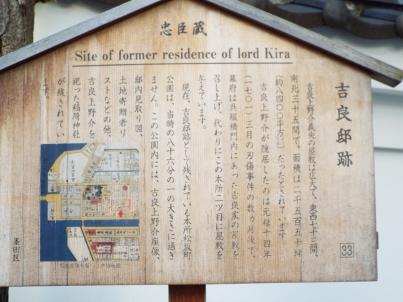 忠臣蔵
Site of former residence of lord Kira
吉良邸跡
吉良上野介義央の屋敷は広大で、東西七十三間、
南北三十五間で、面積は二千五百五十坪
(約八四〇〇平方m)だったとされています。
吉良上野介が隠居したのは元禄十四年
(一七〇一)三月の刃傷事件の数ヵ月後で、
幕府は呉服橋門内にあった吉良家の屋敷を
召し上げ、代わりにこの本所二ツ目に屋敷を
与えています。
現在、吉良邸跡として残されている本所松坂町
公園は、当時の八十六分の一の大きさに過ぎ
ません。この公園内には、吉良上野介座像、
邸内見取り図
土地寄贈者リ
ストなどの他、
吉良上野介を
祀った稲荷神社
が残されてい
ます。
墨田区
33